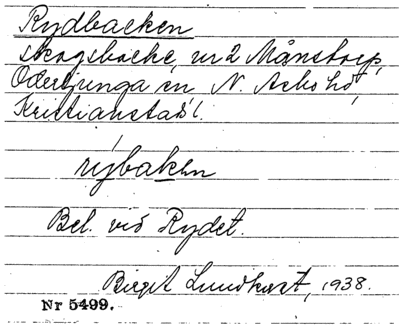 Rydbacken
skogsbacke, nr 2 Månstorp,
Oderljunga sn, N. Åsbo hd,
Kristianstads l.
rýbaken
Bel. vid Rydet.
Birgit Lundkvist, 1938.
Nr 5499.